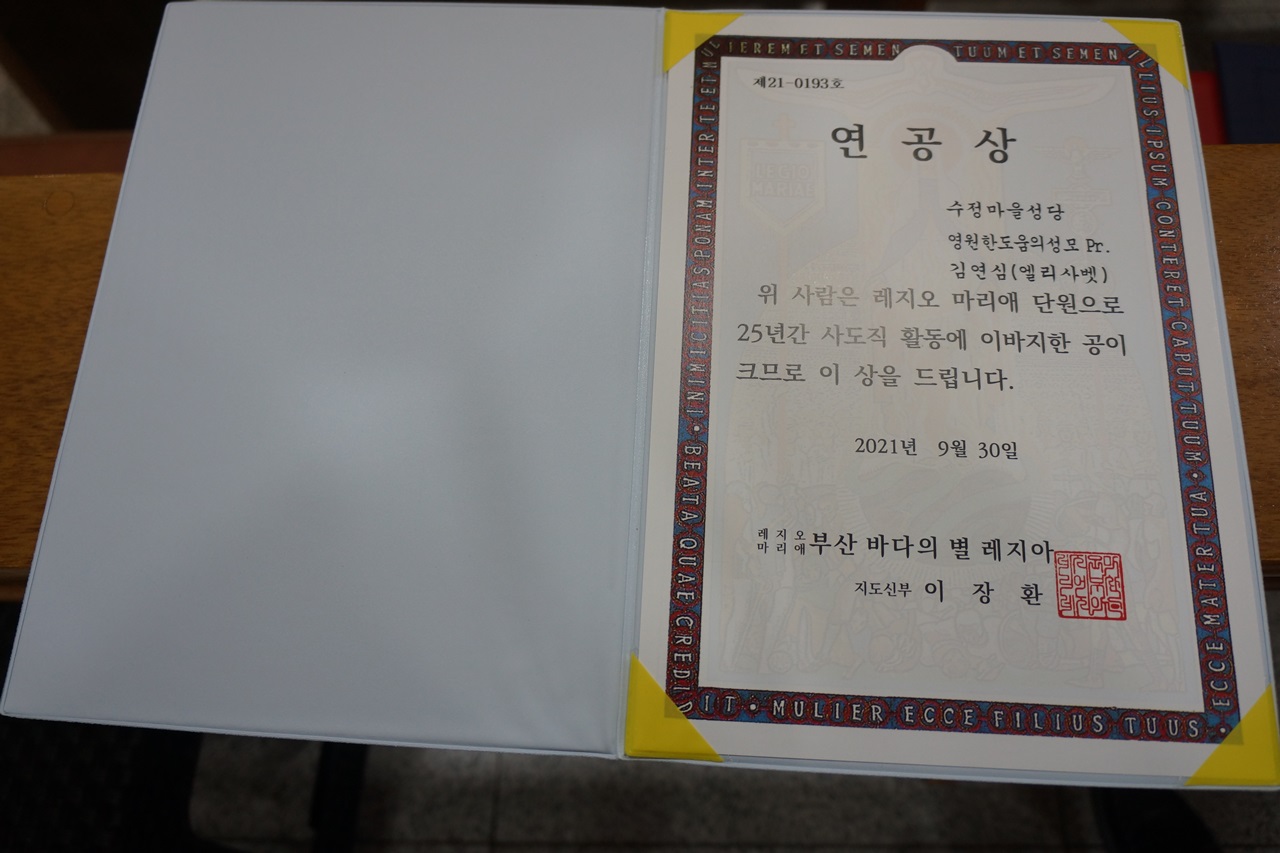 IEREM ET SEMEN TUUM ET SEMEN ILLIUS IPSUM CONTERET CAPUT TUUM • ECCE MATER TUA •
MULIER ECCE FILIUS TUUS •
BEATA QUAE CREDIDIT •
INIMICITIAS PONAM INTER TE ET MUL
제21-0193호
LEGIO
MARIAE
연 공 상
수정마을성당
영원한도움의성모 Pr.
김연심(엘리사벳)
위 사람은 레지오 마리애 단원으로
25년간 사도직 활동에 이바지한 공이
크므로 이 상을 드립니다.
2021년 9월 30일
레지오
마리애 부산 바다의 별 레지아
지도신부 이 장 환